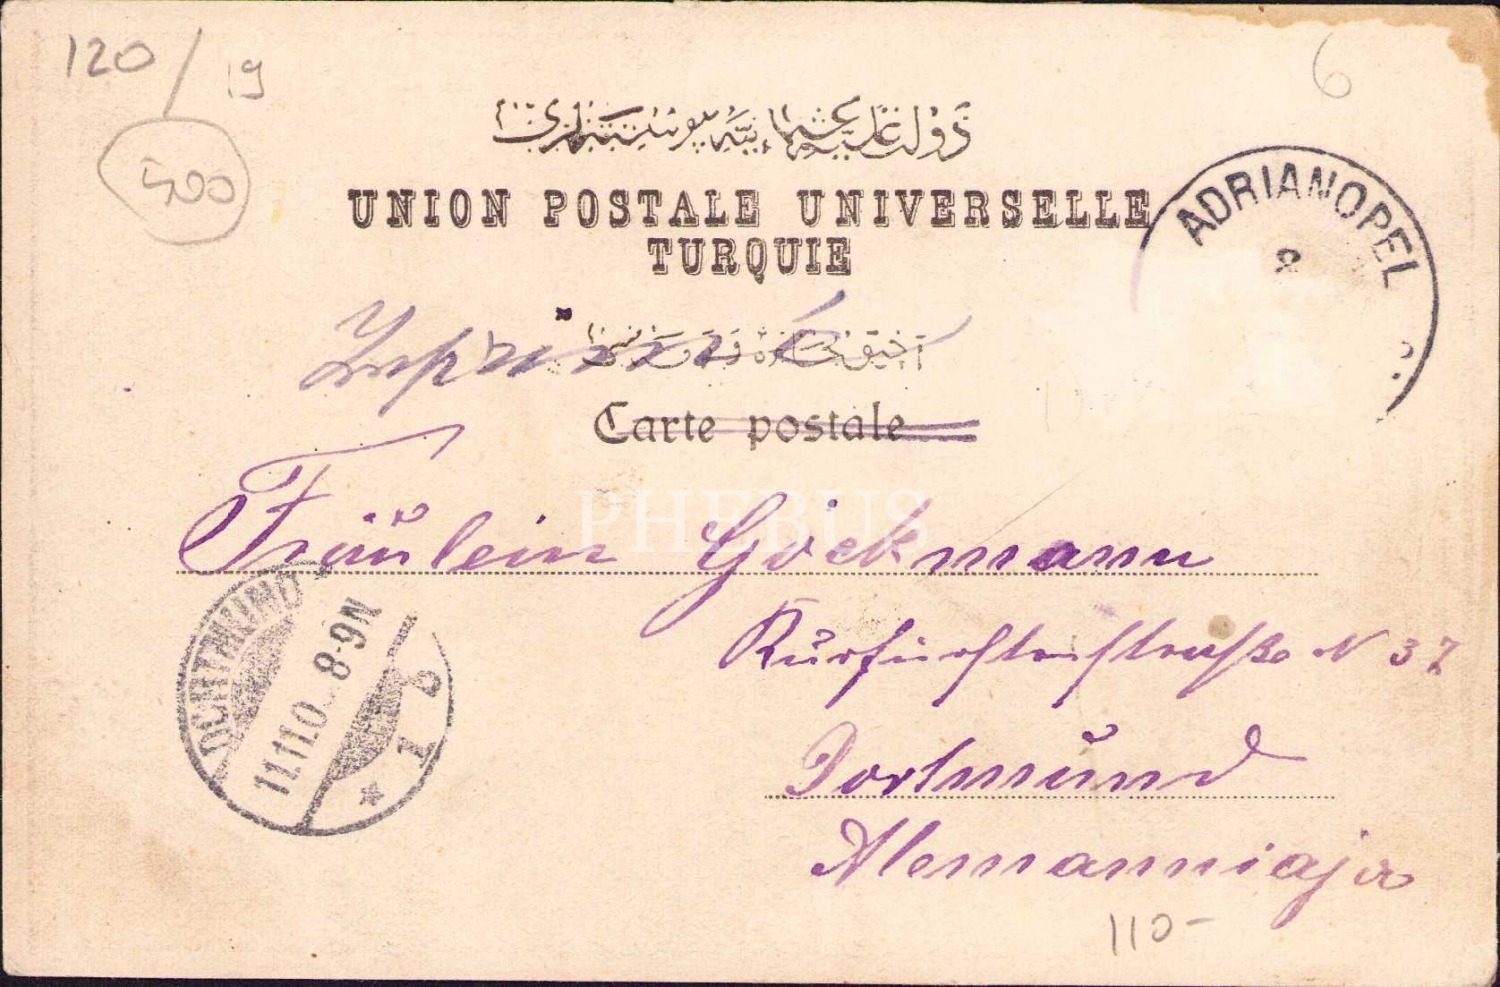 120/19
6
500
دولت علیهٔ عثمانیه پوسته‌لری
UNION POSTALE UNIVERSELLE
TURQUIE
ADRIANOPEL
Imprimé
Carte postale
PHEBUS
Fräulein Göckmann
DORTMUND
11.11.0 8-9N
* 1 c
Kurfürstenstraße N 37
Dortmund
Alemanniaja
110-